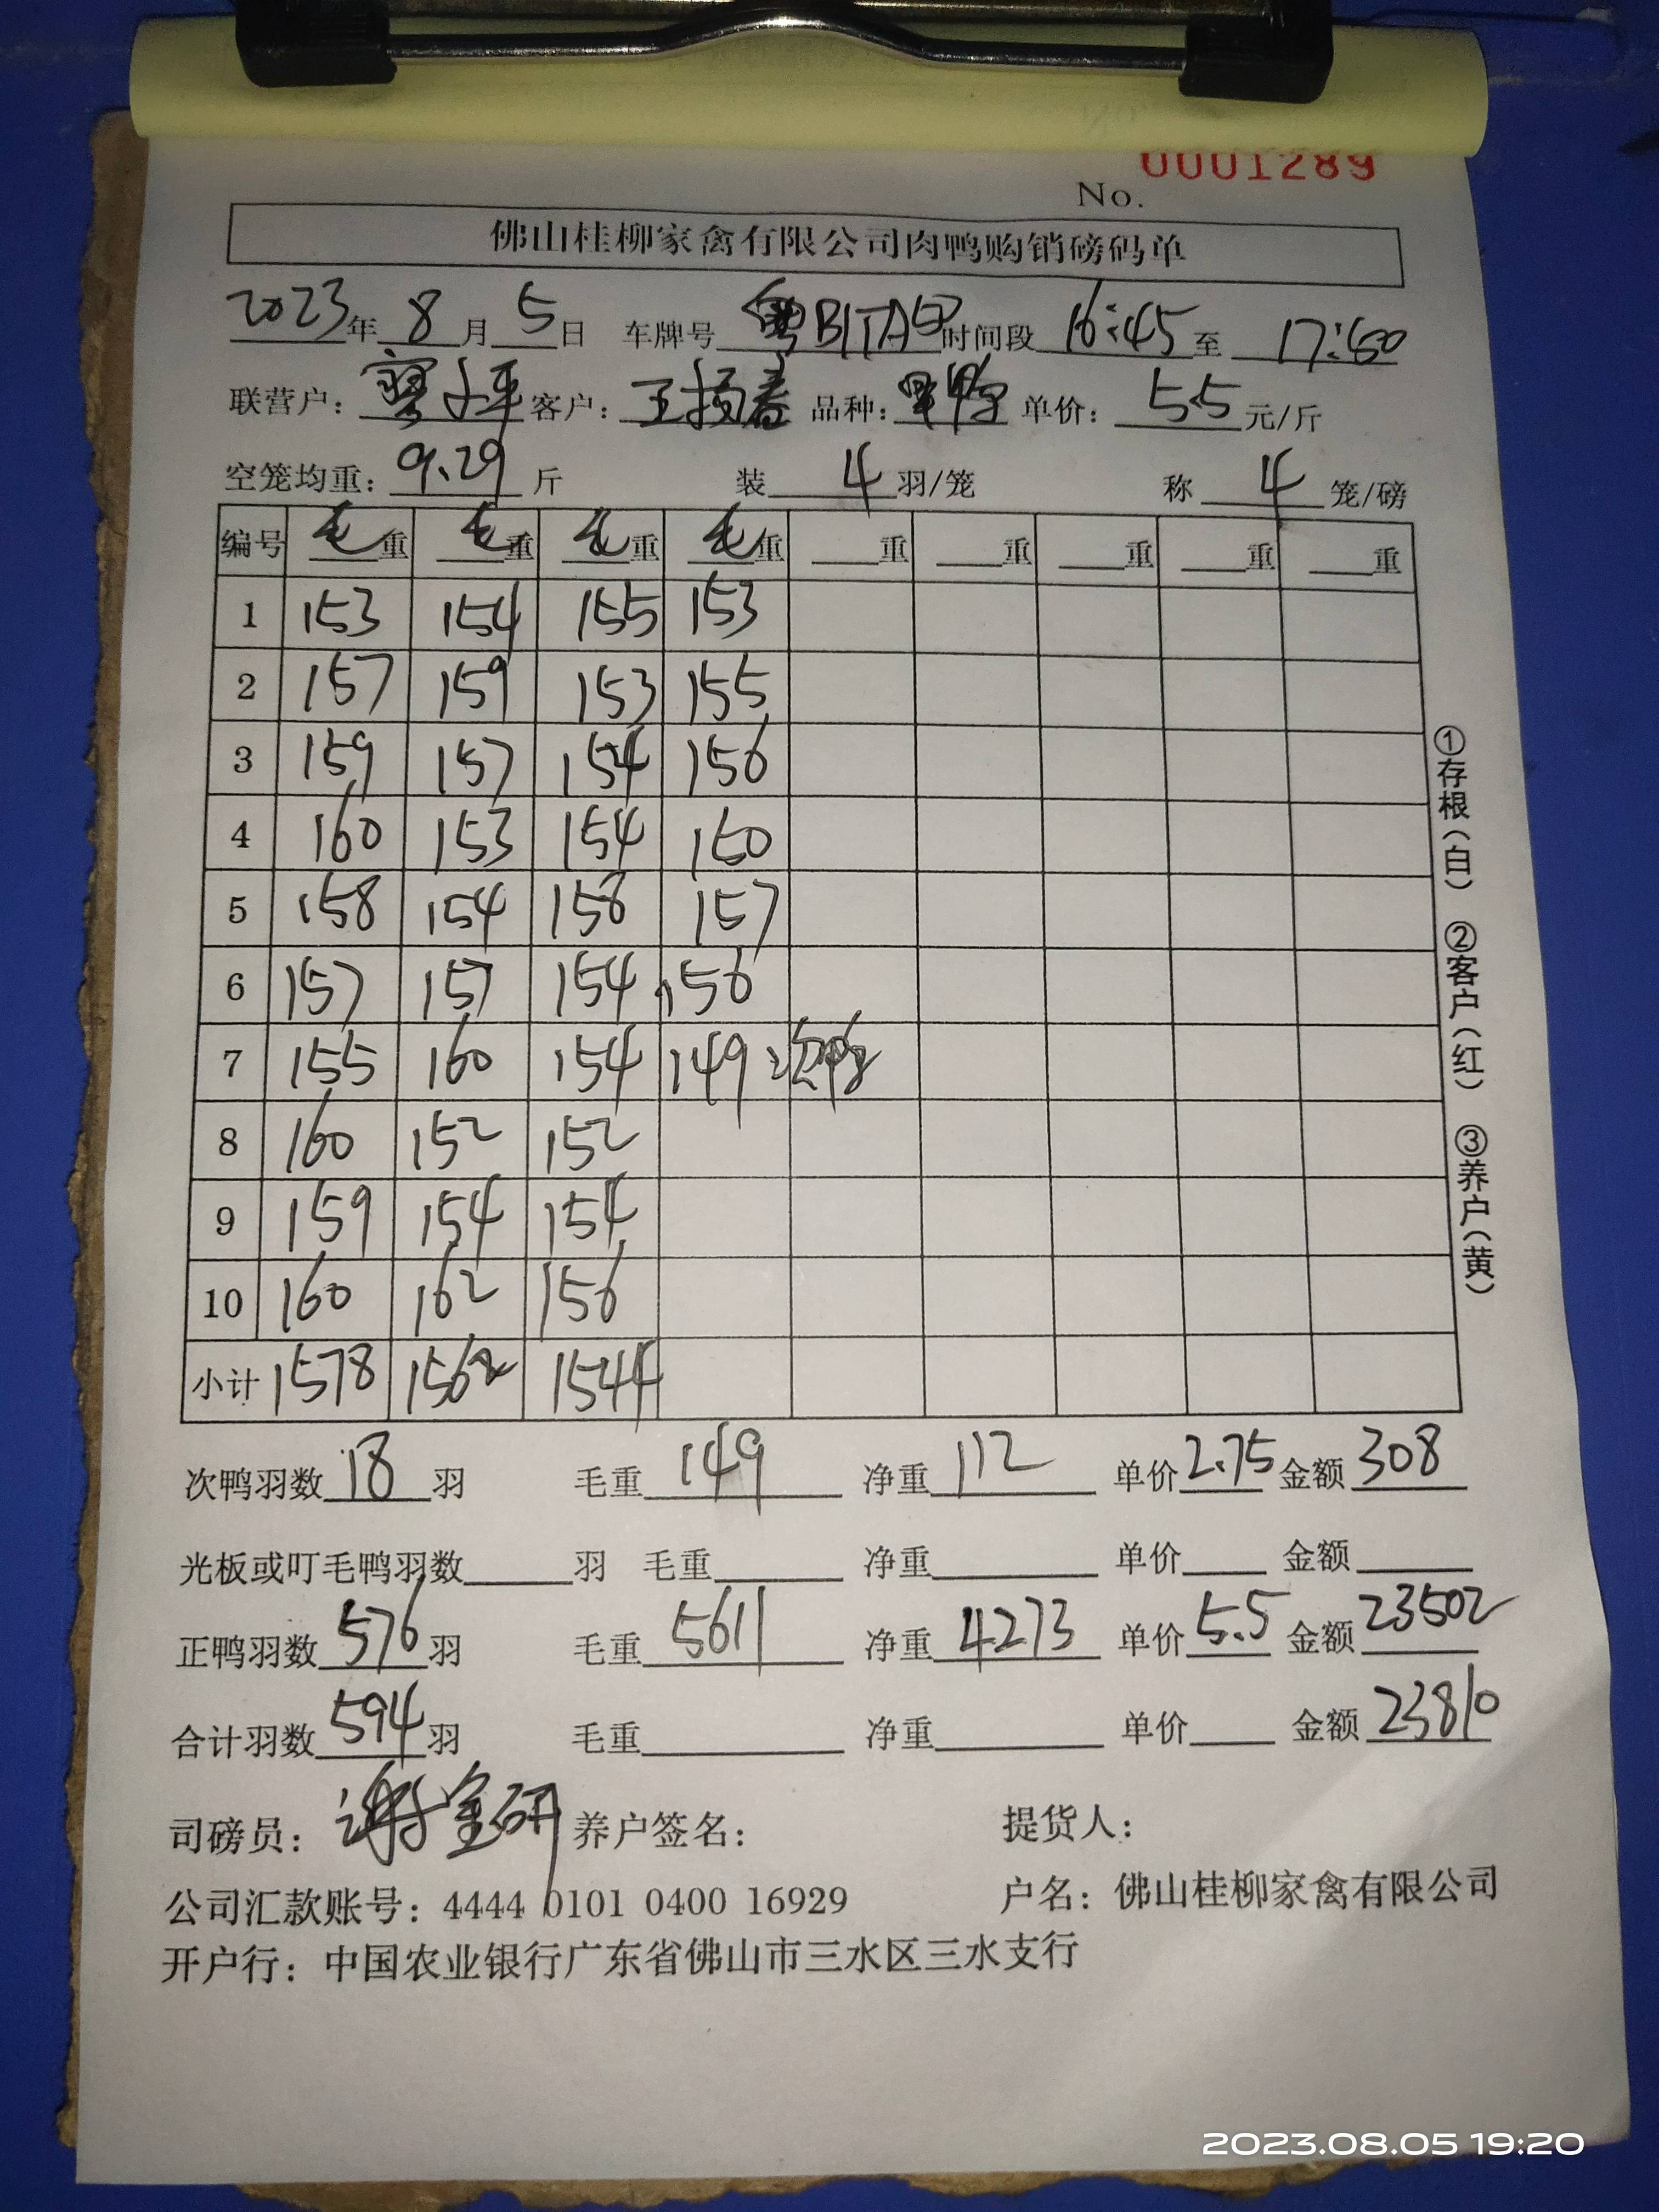 0001289
No.
佛山桂柳家禽有限公司肉鸭购销磅码单
2023年 8 月 5 日 车牌号 时间段 16:45 至 17:50
联营户: 客户: 王扬春 品种: 单价: 5.5 元/斤
空笼均重: 9.29 斤 装 4 羽/笼 称 4 笼/磅
编号 毛重 毛重 毛重 毛重 重 重 重 重 重
1 153 154 155 153
2 157 159 153 155
3 159 157 154 156
4 160 153 154 160
5 158 154 158 157
6 157 157 154 156
7 155 160 154 149 次鸭
8 160 152 152
9 159 154 154
10 160 162 156
小计 1578 1562 1544
次鸭羽数 18 羽 毛重 149 净重 112 单价 2.75 金额 308
光板或叮毛鸭羽数 羽 毛重 净重 单价 金额
正鸭羽数 576 羽 毛重 5611 净重 4273 单价 5.5 金额 23502
合计羽数 594 羽 毛重 净重 单价 金额 23810
司磅员: 谢金研 养户签名: 提货人:
公司汇款账号: 4444 0101 0400 16929 户名: 佛山桂柳家禽有限公司
开户行: 中国农业银行广东省佛山市三水区三水支行
①存根(白) ②客户(红) ③养户(黄)
2023.08.05 19:20